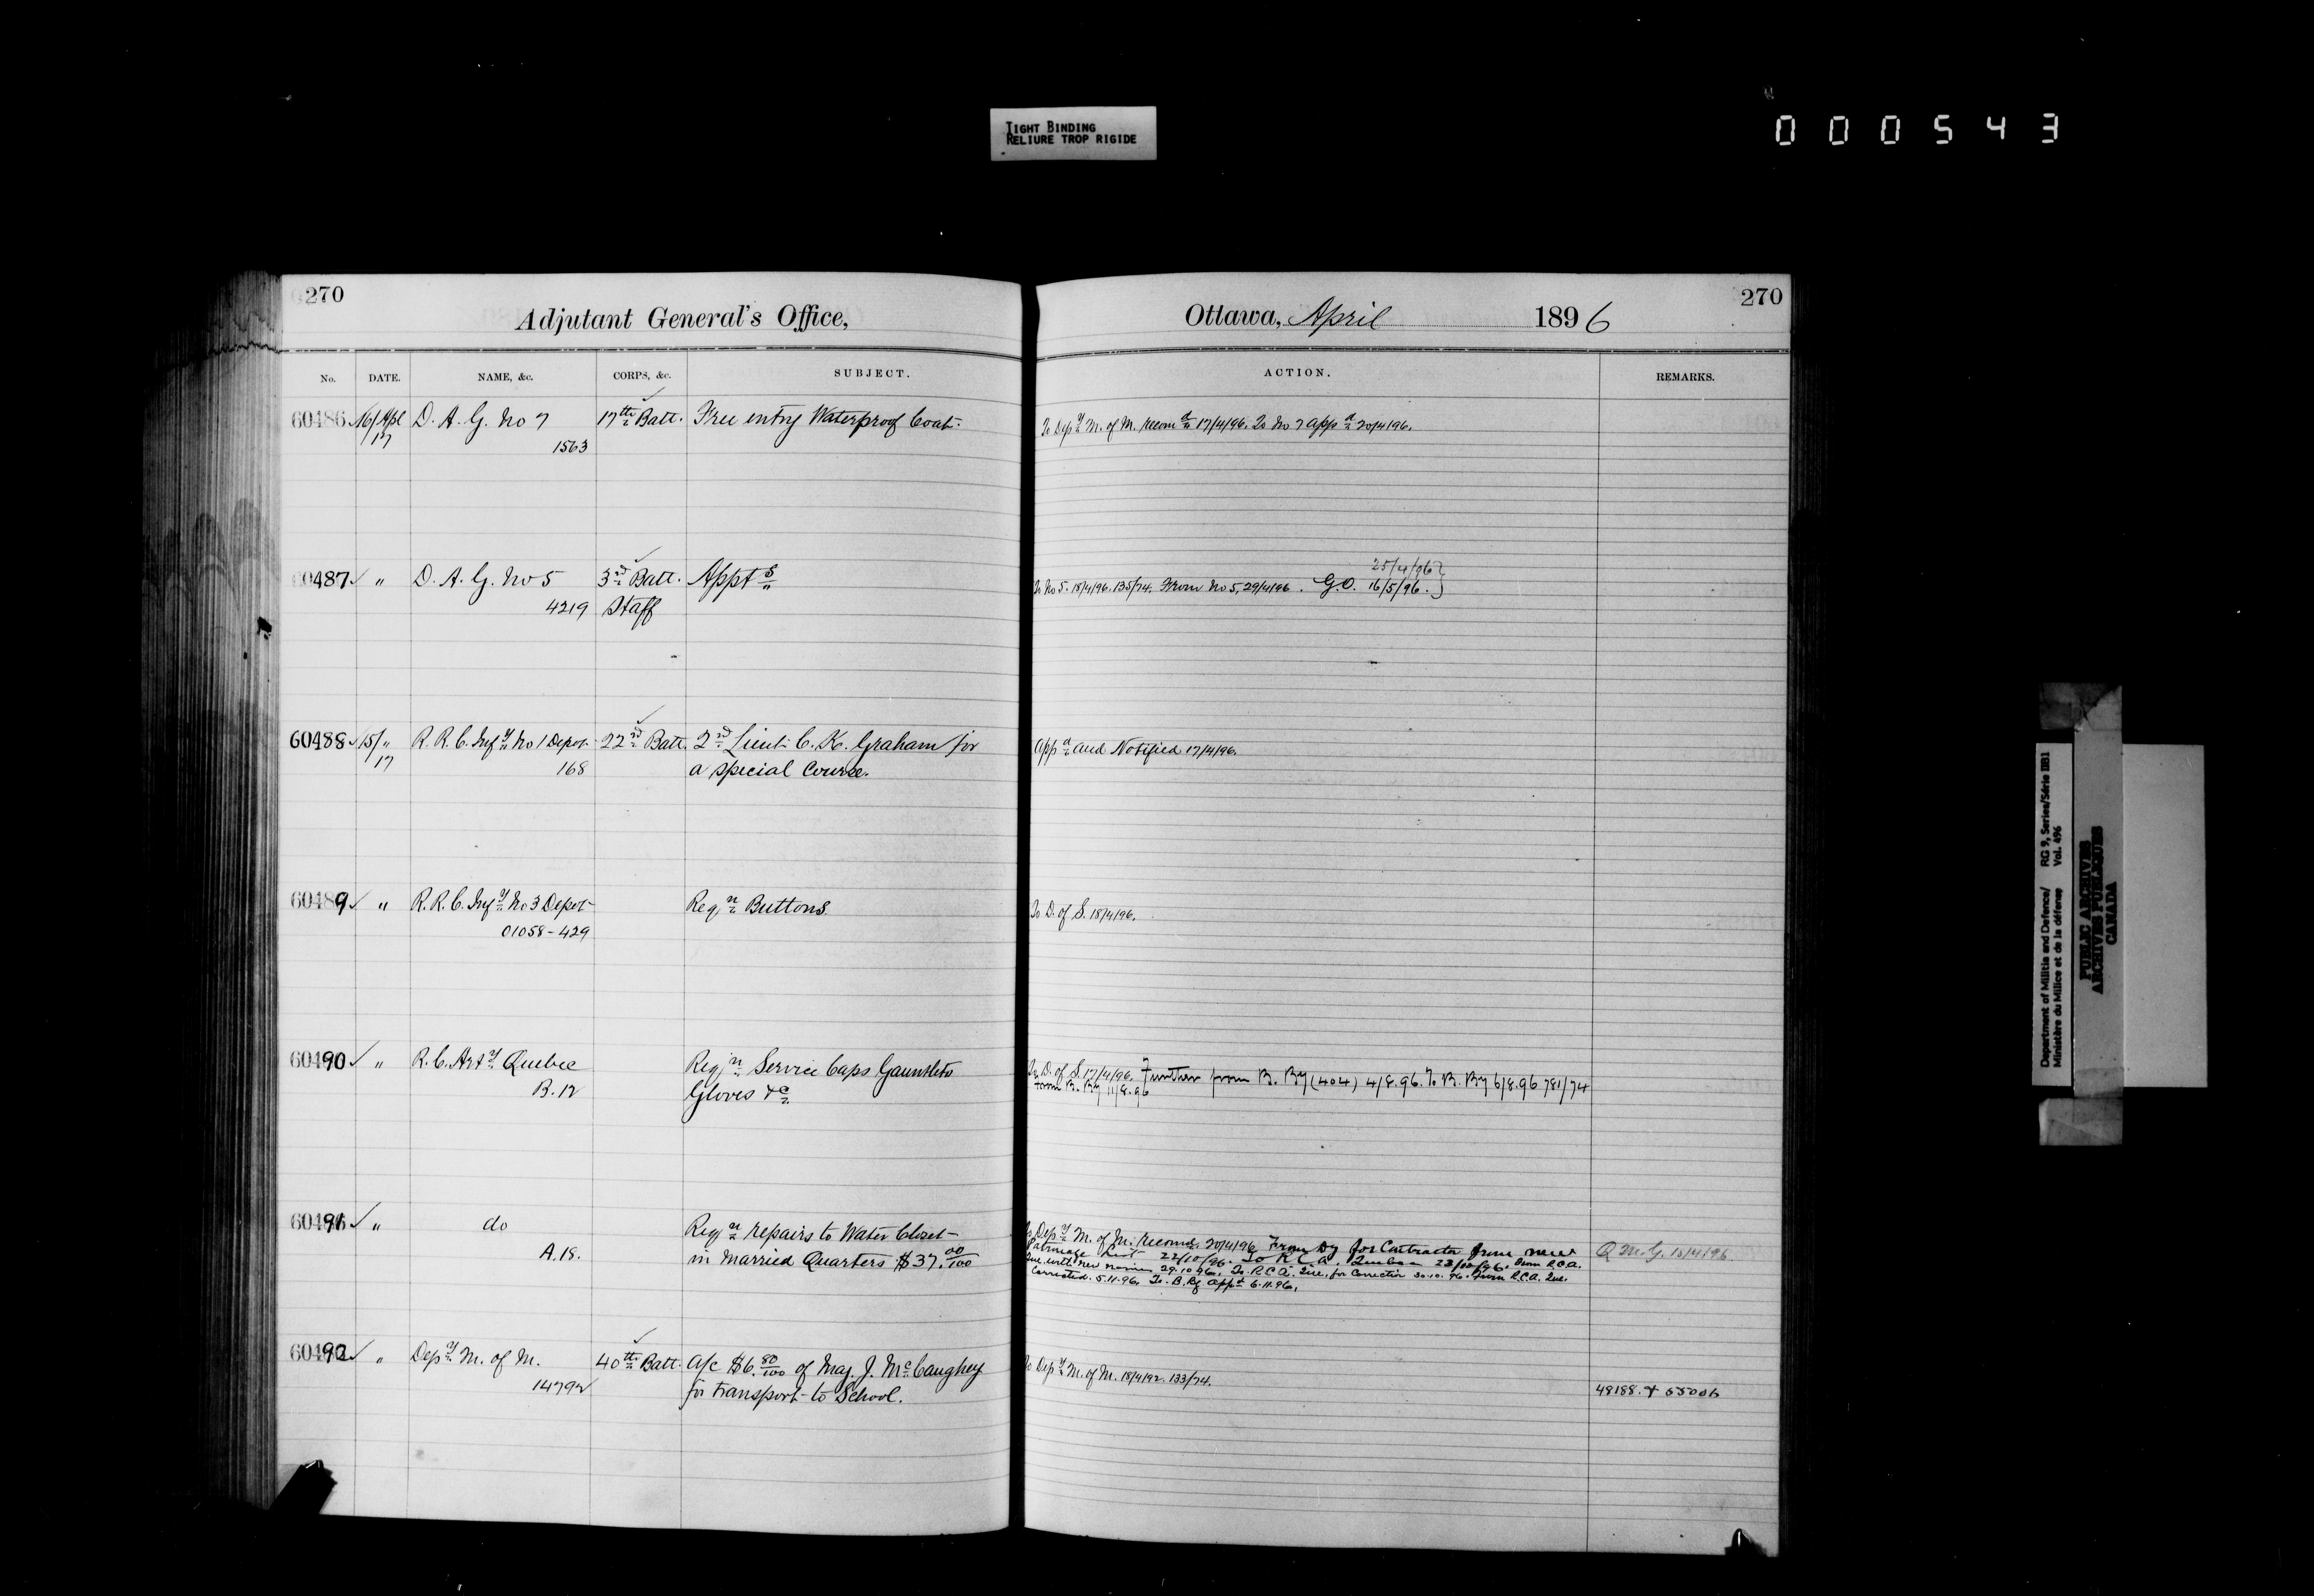 TIGHT BINDING
RELIURE TROP RIGIDE
000543
270
Adjutant General's Office,
No. DATE. NAME, &c. CORPS, &c. SUBJECT.
60486 16/Apl D. A. G. No 7 17th Batt. Free entry Waterproof Coat.
17
1563
60487 " D. A. G. No 5 3rd Batt. Appts
4219 Staff
60488 15/" R. R. C. Infy No 1 Depot 22nd Batt. 2nd Lieut C. K. Graham for
17 168 a special Course.
60489 " R. R. C. Infy No 3 Depot Reqn Buttons.
01058-429
60490 " R. C. Arty Quebec Reqn Service Caps Gauntlets
B. 12 Gloves &c
60491 " do Reqn repairs to Water Closet
A. 18. in Married Quarters $37.00/100
60492 " Depy M. of M. 40th Batt. A/c $6.80/100 of Maj. J. McCaughey
14792 for transport to School.
270
Ottawa, April 1896
ACTION. REMARKS.
To Depy M. of M. recomd 17/4/96. To No 7 appd 20/4/96.
25/4/96
To No 5. 18/4/96. 135/74. From No 5, 29/4/96. G.O. 16/5/96.
Appd and Notified 17/4/96.
To D. of S. 18/4/96.
To D. of S. 17/4/96. Further from B. By (404) 4/8.96. To B. By 6/8.96 781/74
From B. By 11/8.96
To Depy M. of M. recomd. 20/4/96 From Dy for Contractor from new Q.M.G. 18/4/96
Patronage List 22/10/96. To R.C.A. Quebec 23/10/96. From R.C.A.
Que. with new names 29.10.96. To R.C.A. Que. for Correction 30.10.96. From R.C.A. Que.
Corrected. 5.11.96. To B.By appd 6.11.96.
To Depy M. of M. 18/4/92. 133/74.
48188. +
Department of Militia and Defence/ RG 9, Series/Série IIB1
Ministère du Milice et de la défense Vol. 496
PUBLIC ARCHIVES
ARCHIVES PUBLIQUES
CANADA